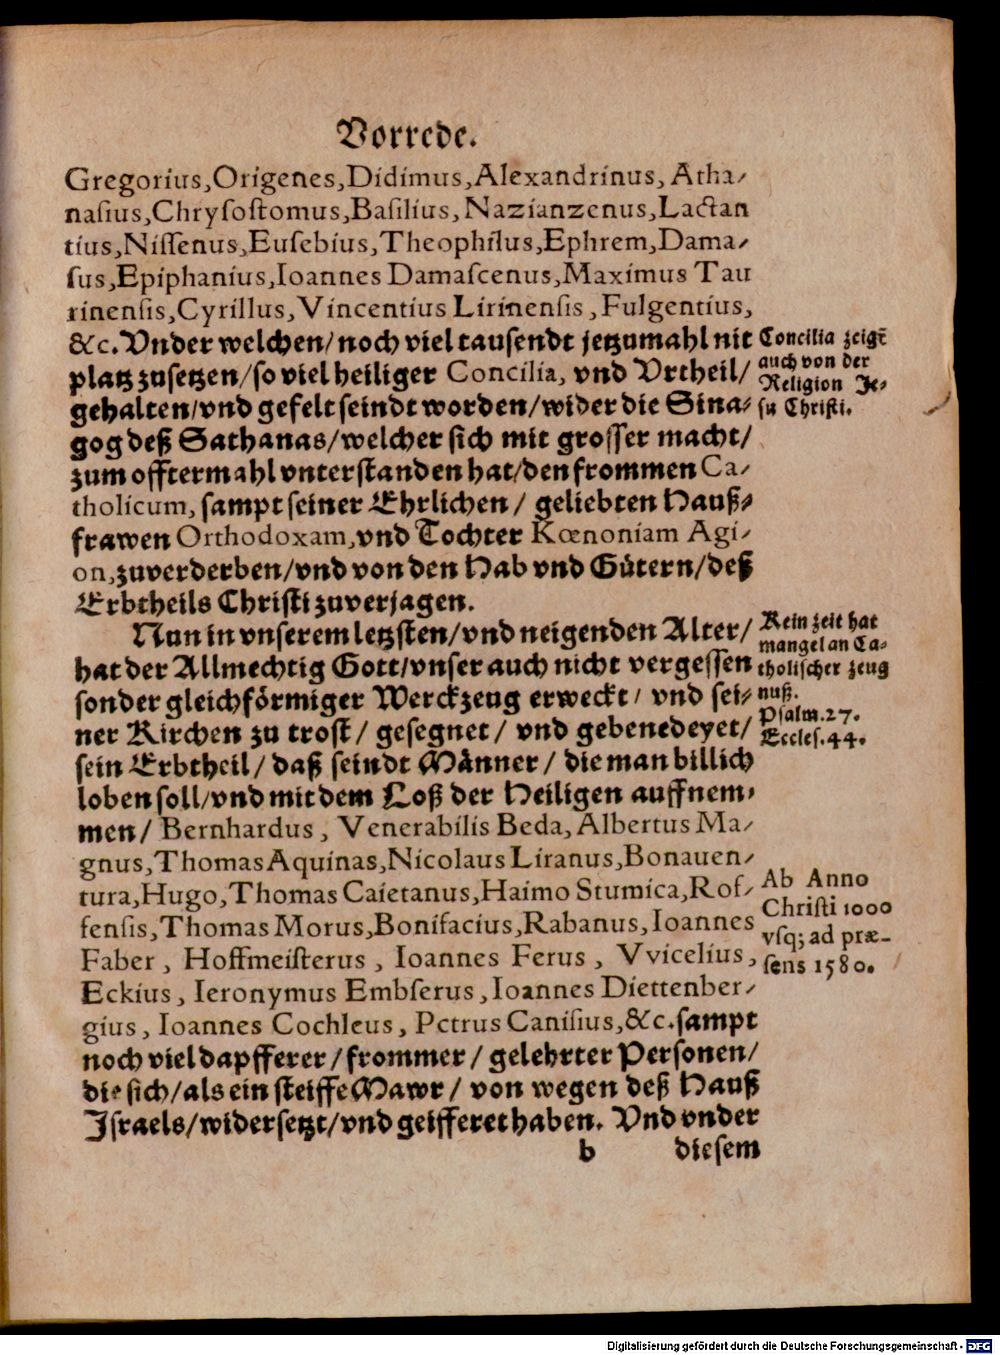 Vorrede.
Gregorius, Origenes, Didimus, Alexandrinus, Atha⸗
naſius, Chryſoſtomus, Baſilius, Nazianzenus, Lactan
tius, Niſſenus, Euſebius, Theophilus, Ephrem, Dama⸗
ſus, Epiphanius, Ioannes Damaſcenus, Maximus Tau
rinenſis, Cyrillus, Vincentius Lirinenſis, Fulgentius,
&c. Vnder welchen/ noch viel tauſendt jetzumahl nit
platz zuſetzen/ ſo viel heiliger Concilia, vnd Vrtheil/
gehalten/ vnd gefelt ſeindt worden/ wider die Sina⸗
gog deß Sathanas/ welcher ſich mit groſſer macht/
zum offtermahl vnterſtanden hat/ den frommen Ca⸗
tholicum, ſampt ſeiner Ehrlichen/ geliebten Hauß⸗
frawen Orthodoxam, vnd Tochter Kœnoniam Agi⸗
on, zuverderben/ vnd von den Hab vnd Gütern/ deß
Erbtheils Chriſti zuverjagen.
Concilia zeigẽ
auch von der
Religion Je⸗
ſu Chriſti.
Nun in vnſerem letzſten/ vnd neigenden Alter/
hat der Allmechtig Gott/ vnſer auch nicht vergeſſen
ſonder gleichförmiger Werckzeug erweckt/ vnd ſei⸗
ner Kirchen zu troſt/ geſegnet/ vnd gebenedeyet/
ſein Erbtheil/ daß ſeindt Männer/ die man billich
loben ſoll/ vnd mit dem Loß der Heiligen auffnem⸗
men/ Bernhardus, Venerabilis Beda, Albertus Ma⸗
gnus, Thomas Aquinas, Nicolaus Liranus, Bonauen⸗
tura, Hugo, Thomas Caietanus, Haimo Stumica, Rof⸗
fenſis, Thomas Morus, Bonifacius, Rabanus, Ioannes
Faber, Hoffmeiſterus, Ioannes Ferus, Vvicelius,
Eckius, Ieronymus Embſerus, Ioannes Diettenber⸗
gius, Ioannes Cochleus, Petrus Caniſius, &c. ſampt
noch viel dapfferer/ frommer/ gelehrter Perſonen/
die ſich/ als ein ſteiffe Mawr/ von wegen deß Hauß
Iſraels/ widerſetzt/ vnd geifferet haben. Vnd vnder
Kein zeit hat
mangel an Ca⸗
tholiſcher zeug
nuß.
Pſalm. 27.
Eccleſ. 44.
Ab Anno
Chriſti 1000
vſq; ad præ-
ſens 1580.
b diesem
Digitalisierung gefördert durch die Deutsche Forschungsgemeinschaft - DFG